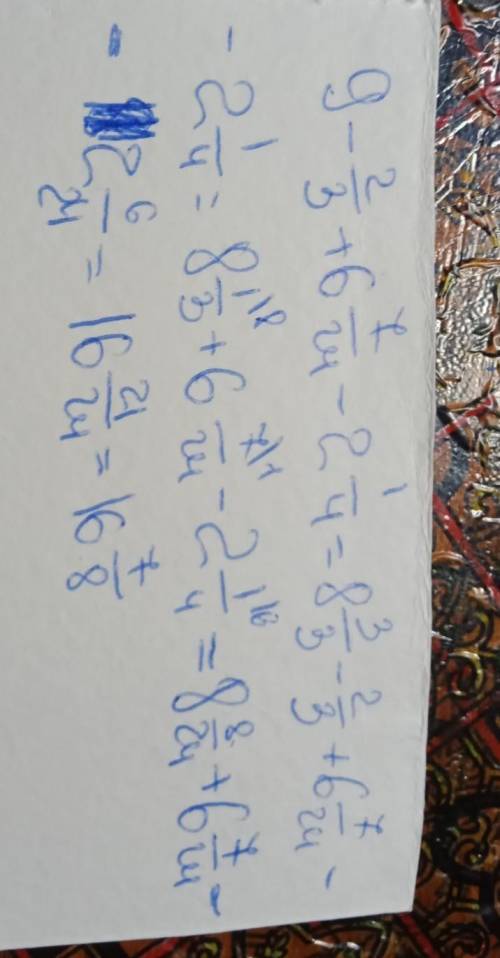 9 - 2/3 + 6 7/24 - 2 1/4 = 8 3/3 - 2/3 + 6 7/24 -
- 2 1/4 = 8 1\8/3 + 6 7\1/24 - 2 1\6/4 = 8 8/24 + 6 7/24 -
- 2 6/24 = 16 21/24 = 16 7/8